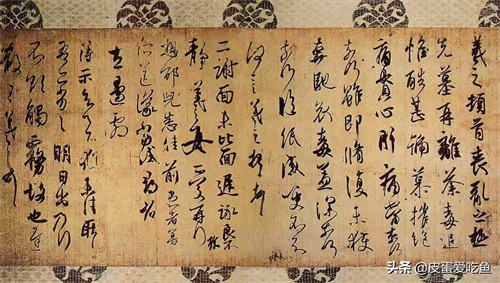 羲之頓首喪亂之極
先墓再離荼毒追
惟酷甚號慕摧絕
痛貫心肝痛當奈何
奈何雖即脩復未獲
奔馳哀毒益深奈何
奈何臨紙感哽不知
何言羲之頓首頓首
二謝面未比面遲詠良不
靜羲之女愛再拜
想邰兒悉佳前患者善
所送議當試尋省
左邊劇
得示知足下猶未佳耿
耿吾亦劣劣明日出乃行
不欲觸霧故也遲
散王羲之頓首
头条 @皮蛋爱吃鱼